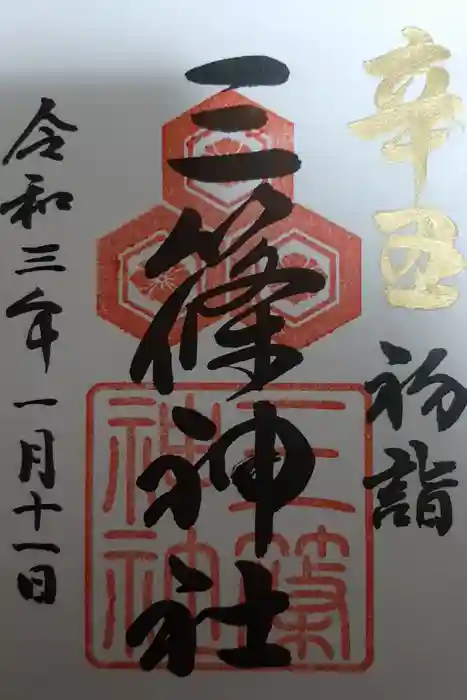 辛丑
初詣
三篠神社
令和三年一月十一日
三篠
神社